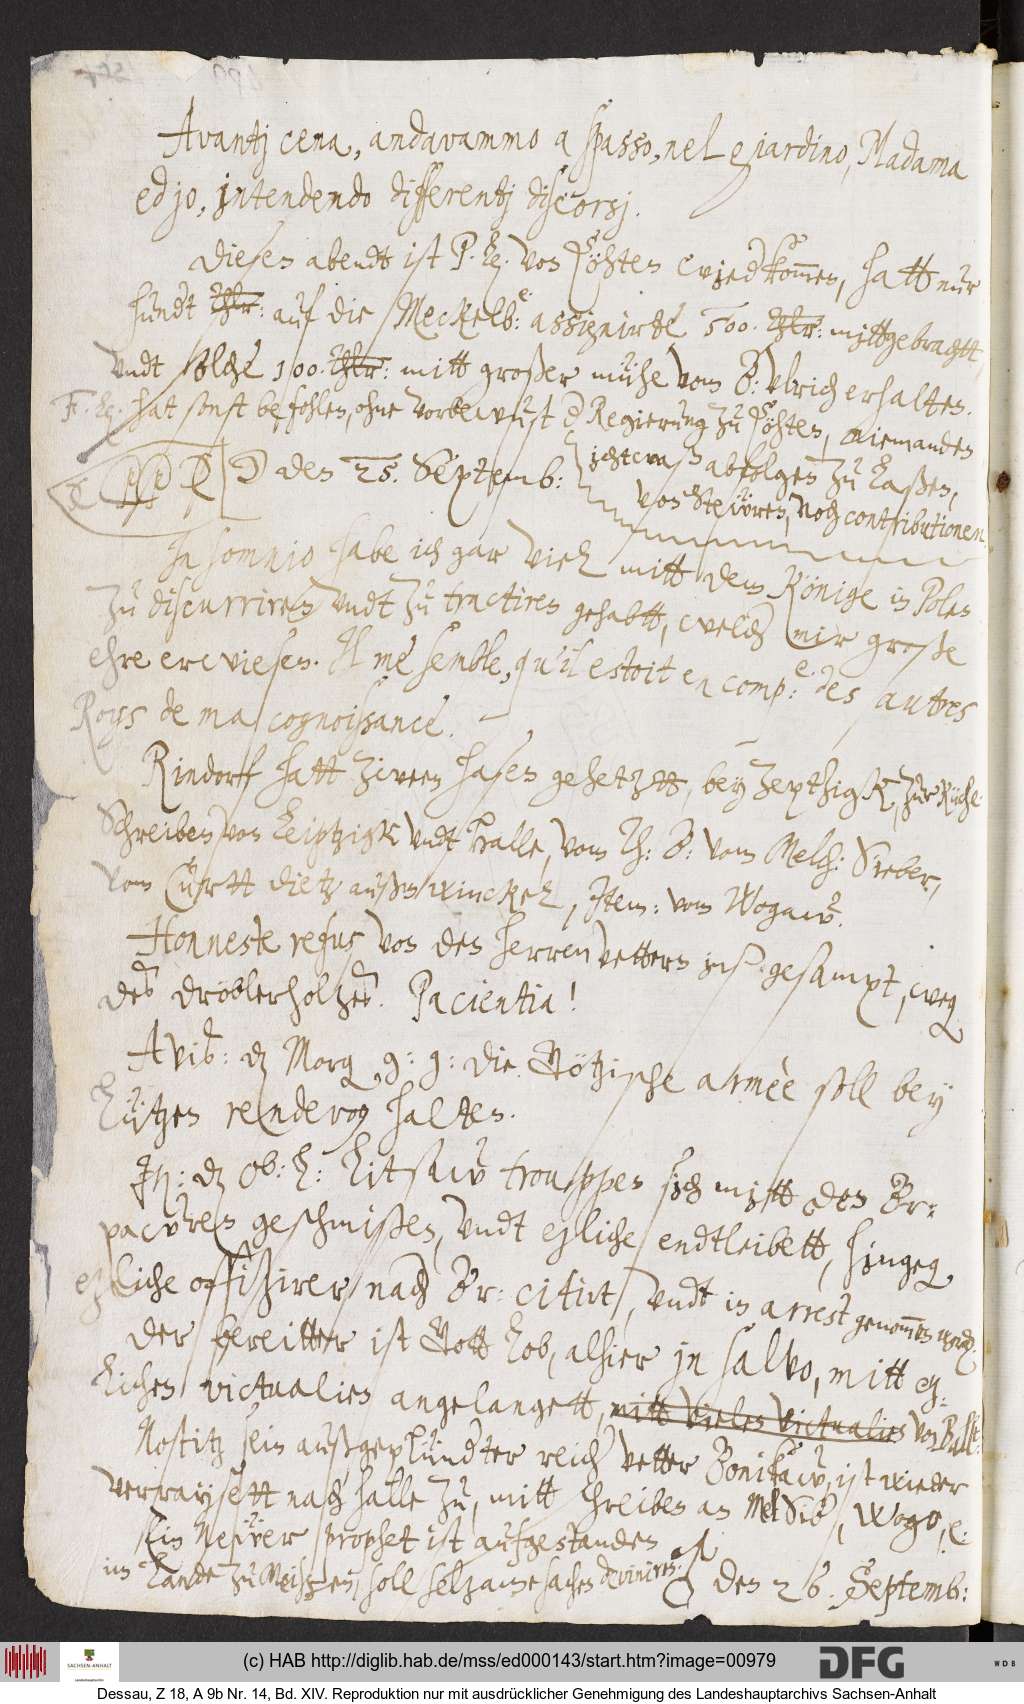 Avantj cena, andavammo a spasso, nel giardino, Madama
ed jo, jntendendo differentj discorsj.
Diesen abendt ist P. Lg. von Cöhten wiedkommen, hatt nur
hundt Thlr: auf die Meckelb:e assignirte 500. Thlr: mittgebracht,
vndt solche 100. Thlr: mitt großer mühe vom D: Vlrich erhalten.
F. Lg. hat sonst befohlen, ohne vorbewust d Regierung zu Cöhten, niemanden
ichtwaß abfolgen zu laßen,
☽ den 25. Septemb:
von Steüren, noch contributionen
In somnio habe ich gar viel mitt dem Könige in Polen
zu discurriren vndt zu tractiren gehabtt, welch mir große
ehre erwiesen. Il me semble, qu'il estoit en comp:e des autres
Roys de ma cognoissance.
Rindorff hatt zween hasen gehetztt, bey Zepthigk, zur küche
Schreiben von Leiptzigk vndt Halle, vom Th: B: vom Melch: Sieber,
vom Curtt Dietz außm winckel, Item: vom Wogaw.
Honneste refus von den herren vettern ins gesampt, weg
des dröblerholtzes. Pacientia!
Avis: d Morg g: g: die Götzische armèe soll bey
Lützen rendevoz halten.
It: d Ob: L: Litsaw trouppen sich mitt den Br=
pawren geschmißen, vndt ezliche endtleibett, hingeg
ezliche offizirer nach Br: citirt, vndt in arrest genommen word.
Der bereitter ist Gott lob, alhier jn salvo, mitt ez=
lichen victualien angelangett, mitt vielen victualien von Ball:
Nostitz sein außgeplünderter reich vetter Bonikaw, ist wieder
verraysett nach Halle zu, mitt schreiben an Mel Sib, Wogo, e.
Ein Neuer prophet ist aufgestanden
im Lande zu Meißen, soll selzame sachen deviniren.
♂ den 26. Septemb:
(c) HAB http://diglib.hab.de/mss/ed000143/start.htm?image=00979
SACHSEN-ANHALT
DFG
WDB
Dessau, Z 18, A 9b Nr. 14, Bd. XIV. Reproduktion nur mit ausdrücklicher Genehmigung des Landeshauptarchivs Sachsen-Anhalt